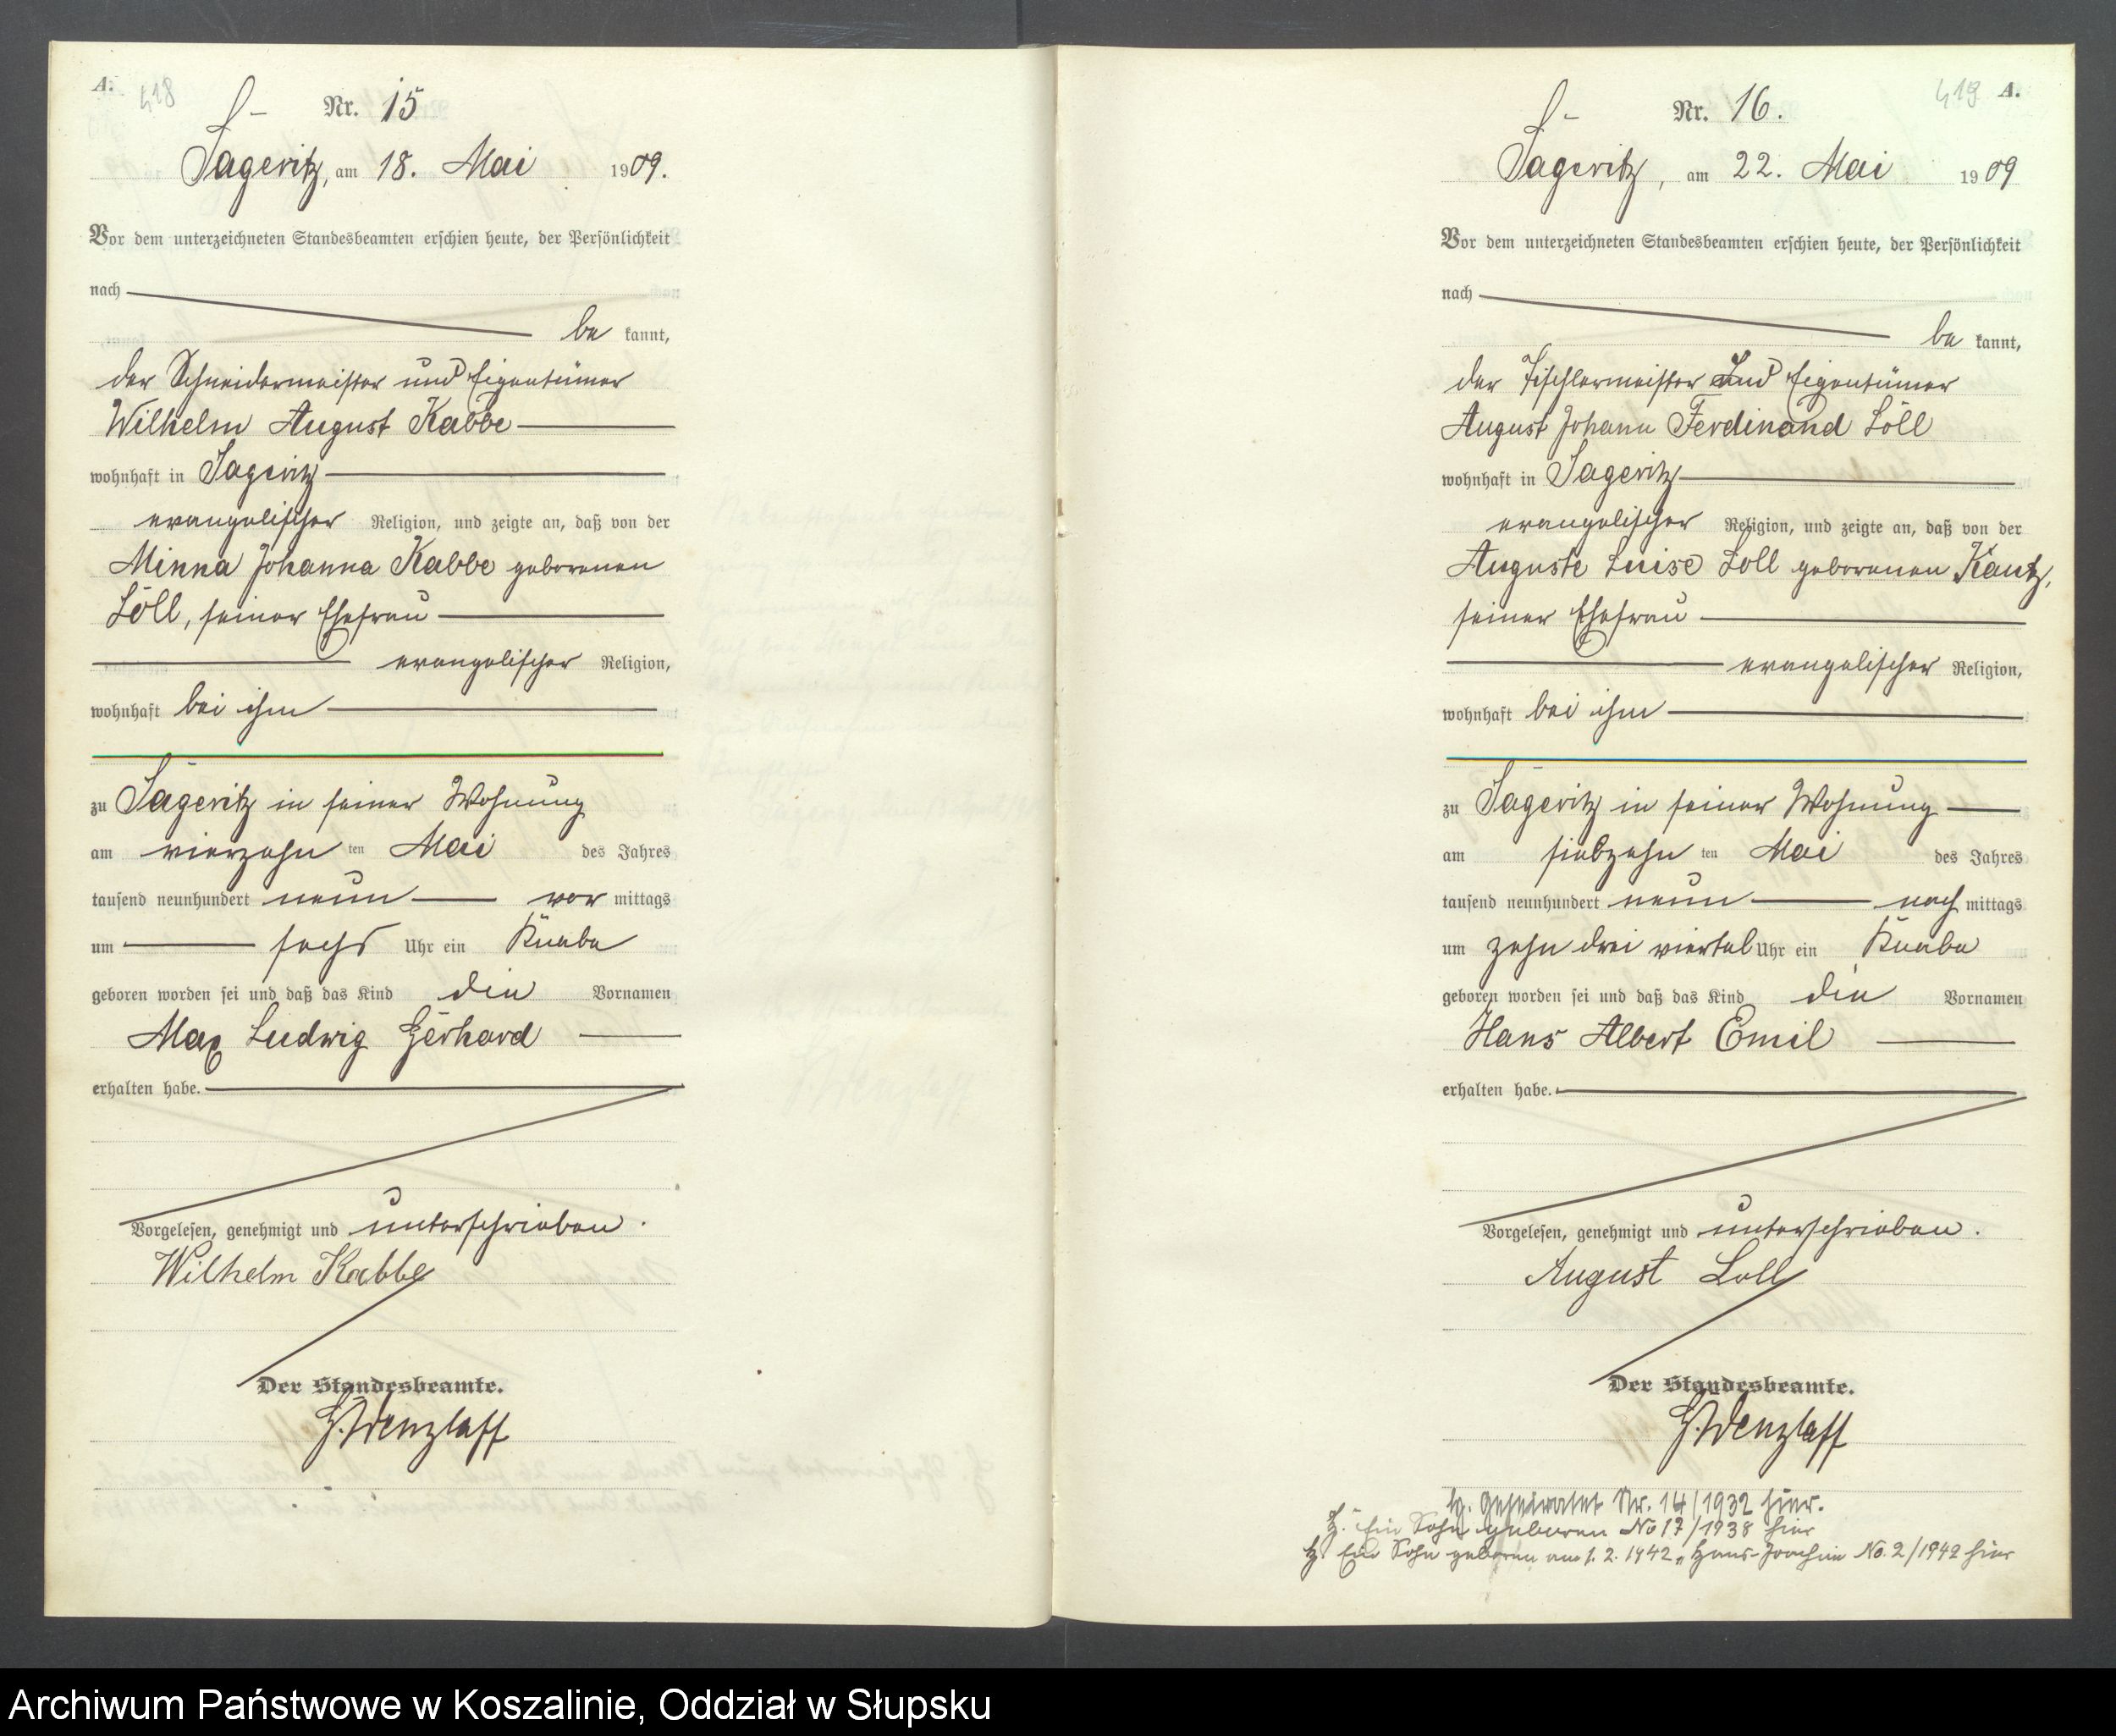 A.
418
Nr. 15
Sageritz, am 18. Mai 1909.
Vor dem unterzeichneten Standesbeamten erschien heute, der Persönlichkeit
nach
be kannt,
der Schneidermeister und Eigentümer
Wilhelm August Kabbe
wohnhaft in Sageritz
evangelischer Religion, und zeigte an, daß von der
Minna Johanna Kabbe geborenen
Löll, seiner Ehefrau
evangelischer Religion,
wohnhaft bei ihm
zu Sageritz in seiner Wohnung
am vierzehn ten Mai des Jahres
tausend neunhundert neun vor mittags
um sechs Uhr ein Knabe
geboren worden sei und daß das Kind die Vornamen
Max Ludwig Gerhard
erhalten habe.
Vorgelesen, genehmigt und unterschrieben.
Wilhelm Kabbe
Der Standesbeamte.
H. Wenzlaff
419 A.
Nr. 16.
Sageritz, am 22. Mai 1909
Vor dem unterzeichneten Standesbeamten erschien heute, der Persönlichkeit
nach
be kannt,
der Tischlermeister und Eigentümer
August Johann Ferdinand Löll
wohnhaft in Sageritz
evangelischer Religion, und zeigte an, daß von der
Auguste Luise Löll geborenen Kautz,
seiner Ehefrau
evangelischer Religion,
wohnhaft bei ihm
zu Sageritz in seiner Wohnung
am siebzehn ten Mai des Jahres
tausend neunhundert neun nach mittags
um zehn drei viertel Uhr ein Knabe
geboren worden sei und daß das Kind die Vornamen
Hans Albert Emil
erhalten habe.
Vorgelesen, genehmigt und unterschrieben.
August Loll
Der Standesbeamte.
H. Wenzlaff
Geheiratet Nr. 14/1932 hier.
Ein Sohn geboren No 17/1938 hier
Ein Sohn geboren am 1.2.1942 „Hans-Joachim No. 2/1942 hier
Archiwum Państwowe w Koszalinie, Oddział w Słupsku